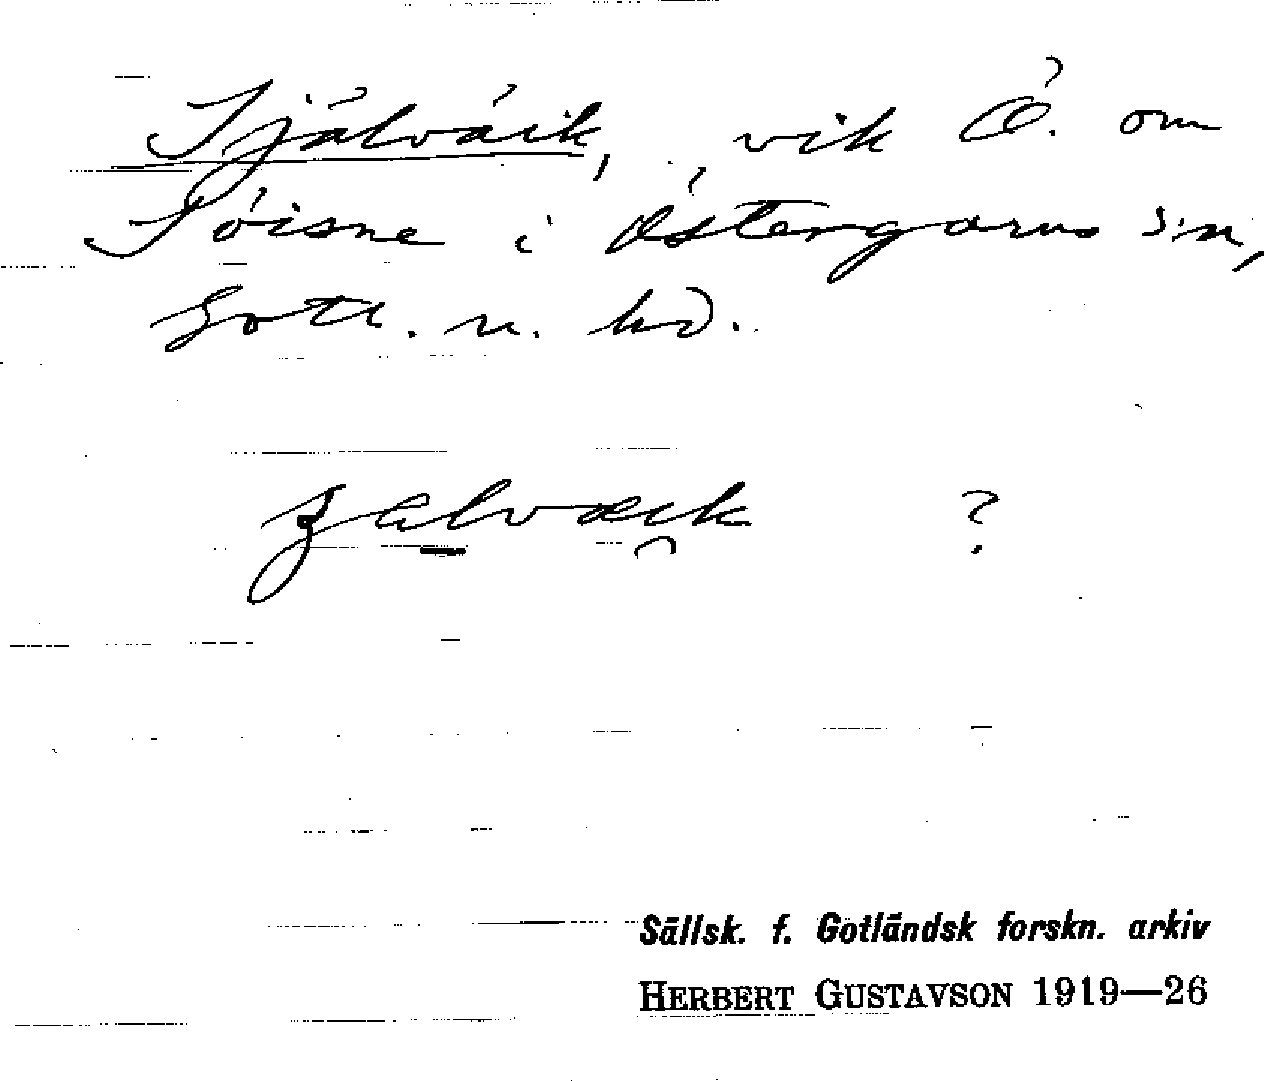 Själväik, vik Ö. om
Söisne i Östergarns s:n,
Gotl. n. hd.
?
Sällsk. f. Gotländsk forskn. arkiv
HERBERT GUSTAVSON 1919—26